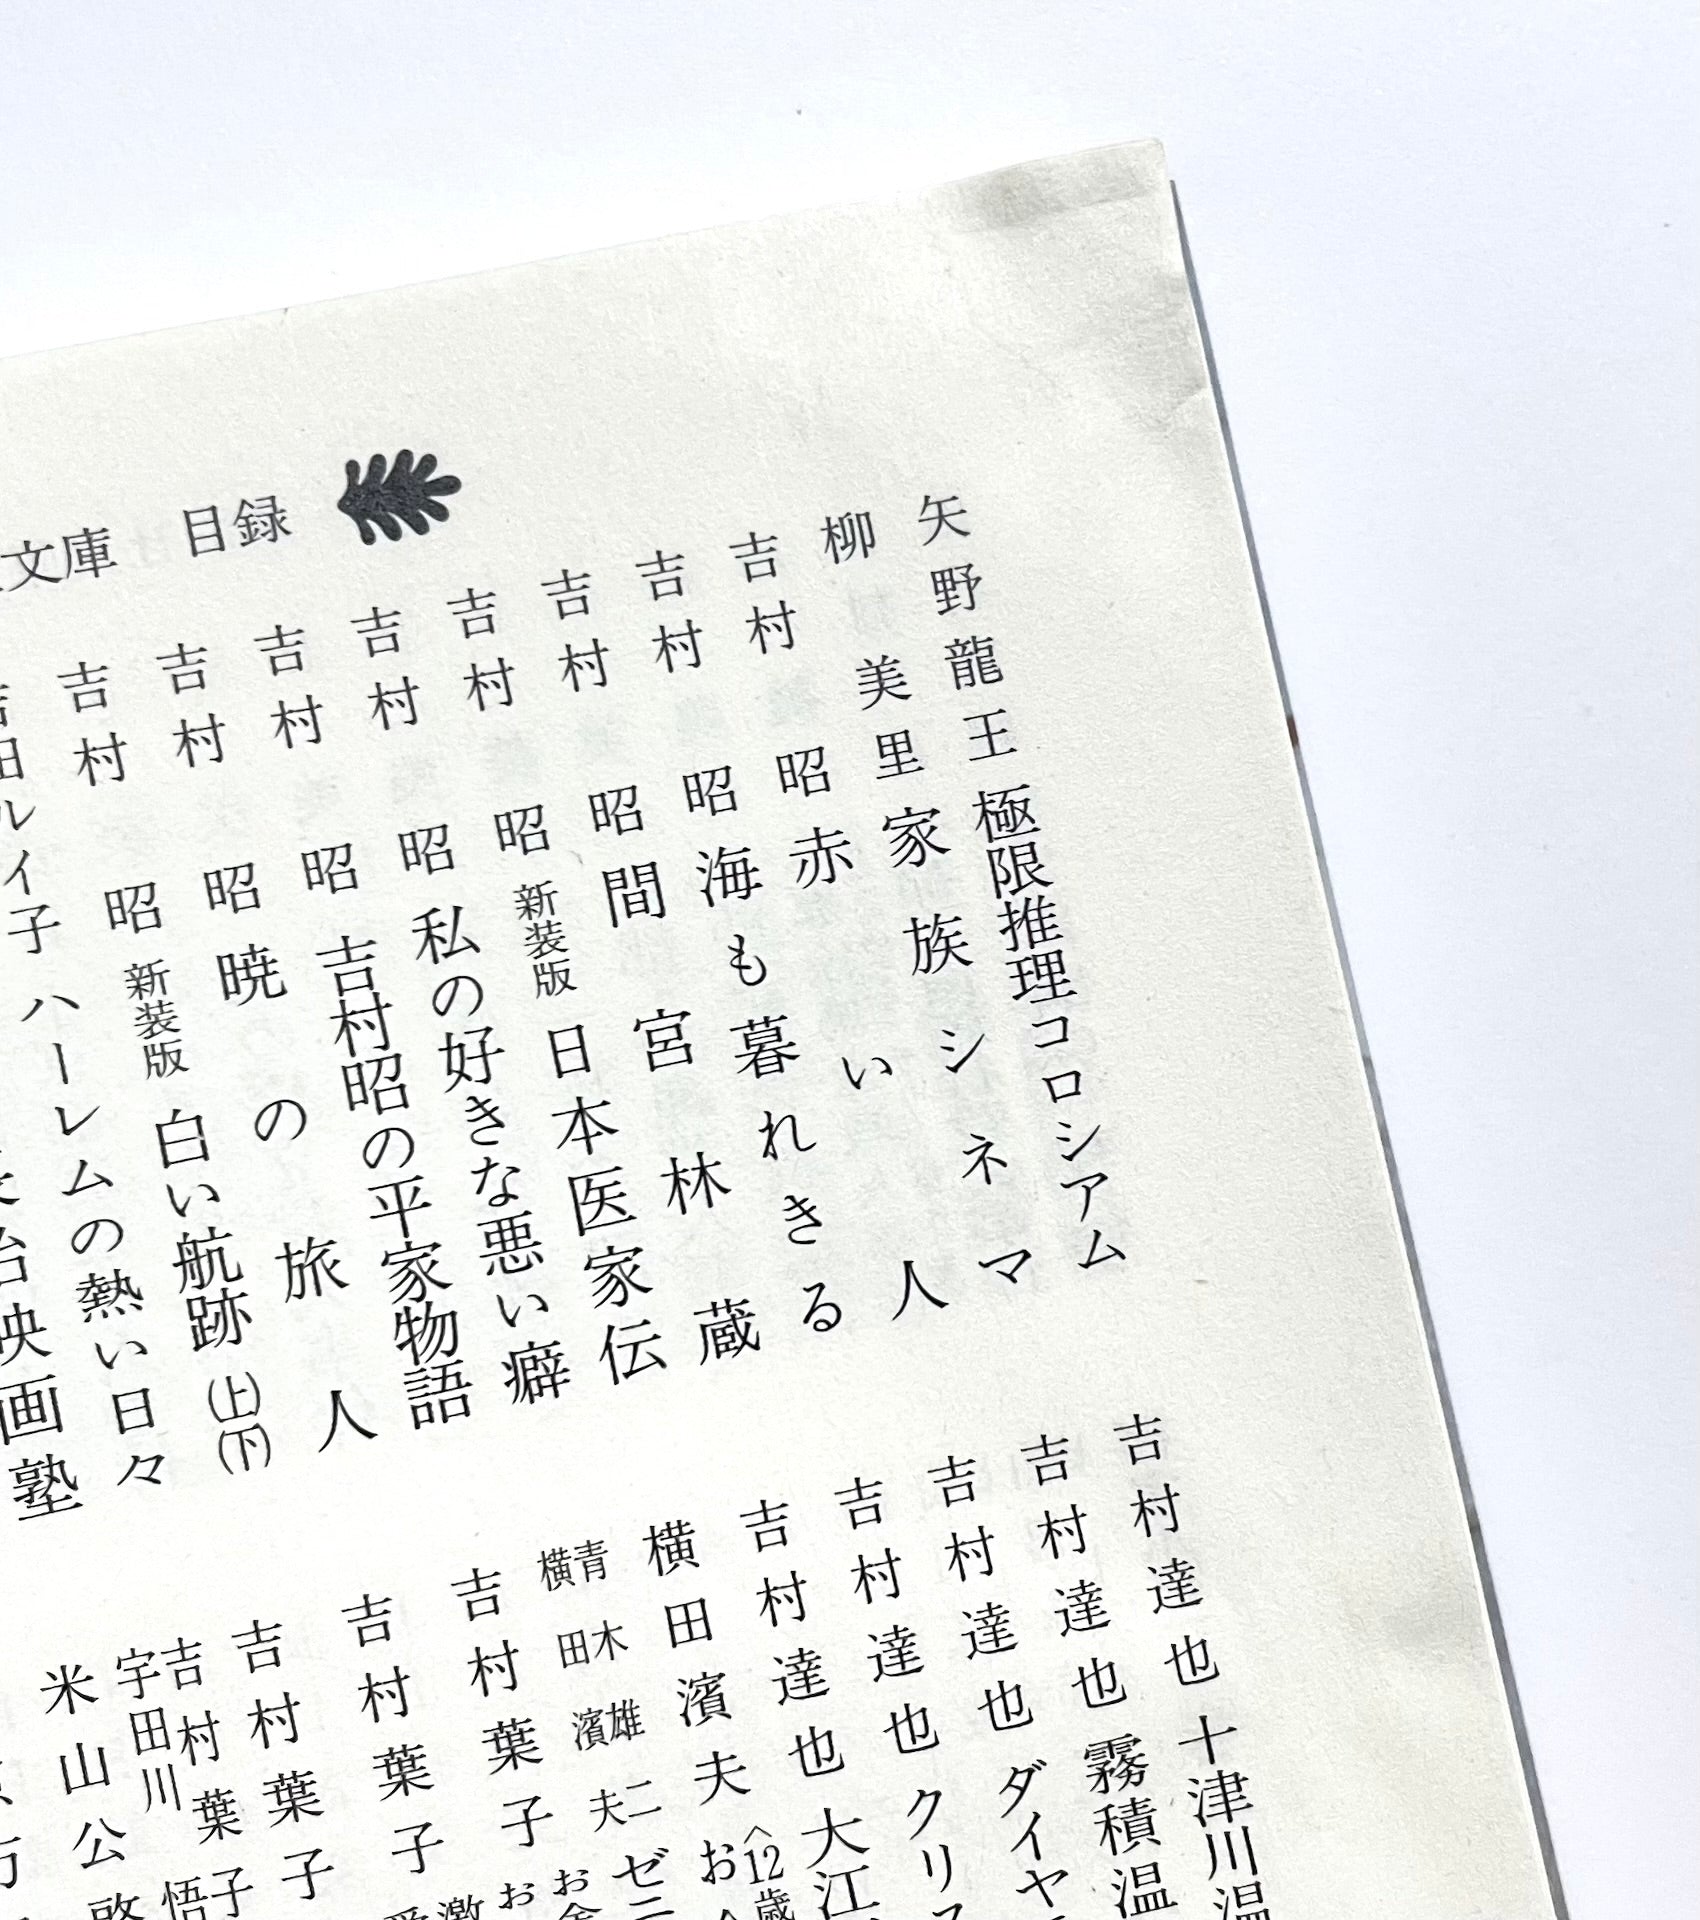 文庫 目録
矢野龍王 極限推理コロシアム
柳美里 家族シネマ
吉村昭 赤い人
吉村昭 海も暮れきる
吉村昭 間宮林蔵
吉村昭 新装版 日本医家伝
吉村昭 私の好きな悪い癖
吉村昭 吉村昭の平家物語
吉村昭 暁の旅人
吉村昭 新装版 白い航跡(上)(下)
吉田ルイ子 ハーレムの熱い日々
映画塾
吉村達也 十津川温
吉村達也 霧積温
吉村達也 ダイヤ
吉村達也 クリス
吉村達也 大江
横田濱夫 お〈12歳
青木雄二 横田濱夫 ゼニ
吉村葉子 お
吉村葉子 激
吉村葉子
吉村葉子 宇田川悟
米山公啓